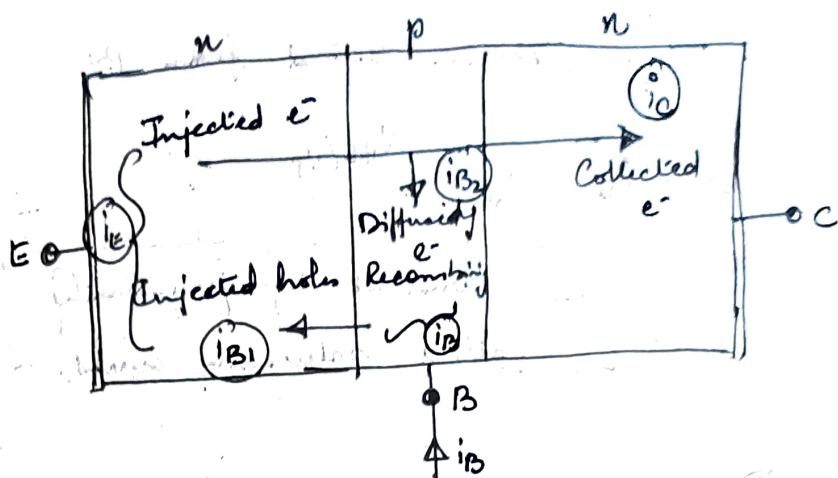 n p n
iC
Injected e⁻
iB2
Collected
e⁻
Diffusing
e⁻
Recombining
iE
E
C
Injected holes
iB1
iB
B
iB